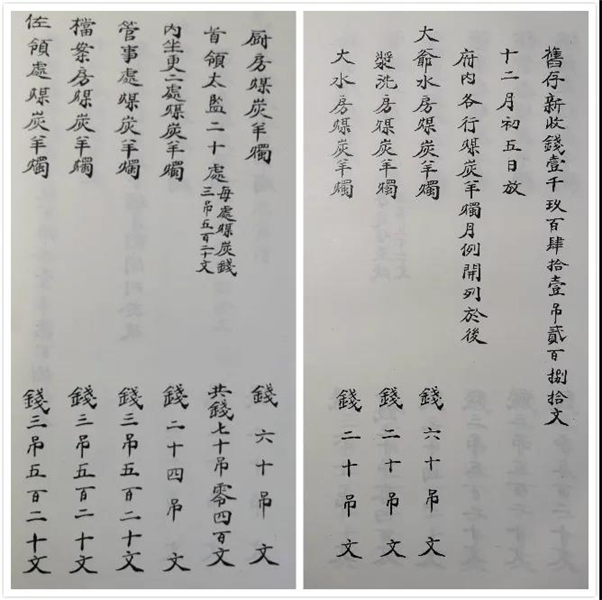 舊存新收錢壹千玖百肆拾壹吊貳百捌拾文
十二月初五日放
府内各行煤炭羊燭月例開列於後
大爺水房煤炭羊燭 錢六十吊文
漿洗房煤炭羊燭 錢二十吊文
大水房煤炭羊燭 錢二十吊文
厨房煤炭羊燭 錢六十吊文
首領太監二十處 每處煤炭錢三吊五百二十文 共錢七十吊零四百文
内坐更二處煤炭羊燭 錢二十四吊文
管事處煤炭羊燭 錢三吊五百二十文
檔案房煤炭羊燭 錢三吊五百二十文
佐領處煤炭羊燭 錢三吊五百二十文